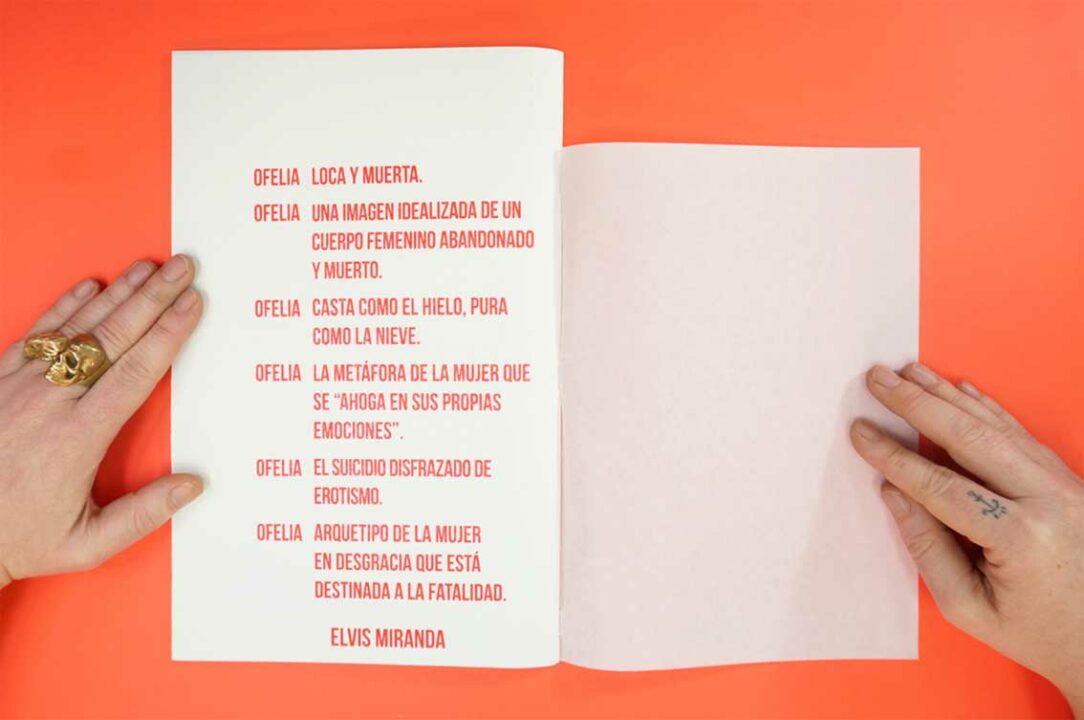 OFELIA LOCA Y MUERTA.
OFELIA UNA IMAGEN IDEALIZADA DE UN
CUERPO FEMENINO ABANDONADO
Y MUERTO.
OFELIA CASTA COMO EL HIELO, PURA
COMO LA NIEVE.
OFELIA LA METÁFORA DE LA MUJER QUE
SE “AHOGA EN SUS PROPIAS
EMOCIONES”.
OFELIA EL SUICIDIO DISFRAZADO DE
EROTISMO.
OFELIA ARQUETIPO DE LA MUJER
EN DESGRACIA QUE ESTÁ
DESTINADA A LA FATALIDAD.
ELVIS MIRANDA